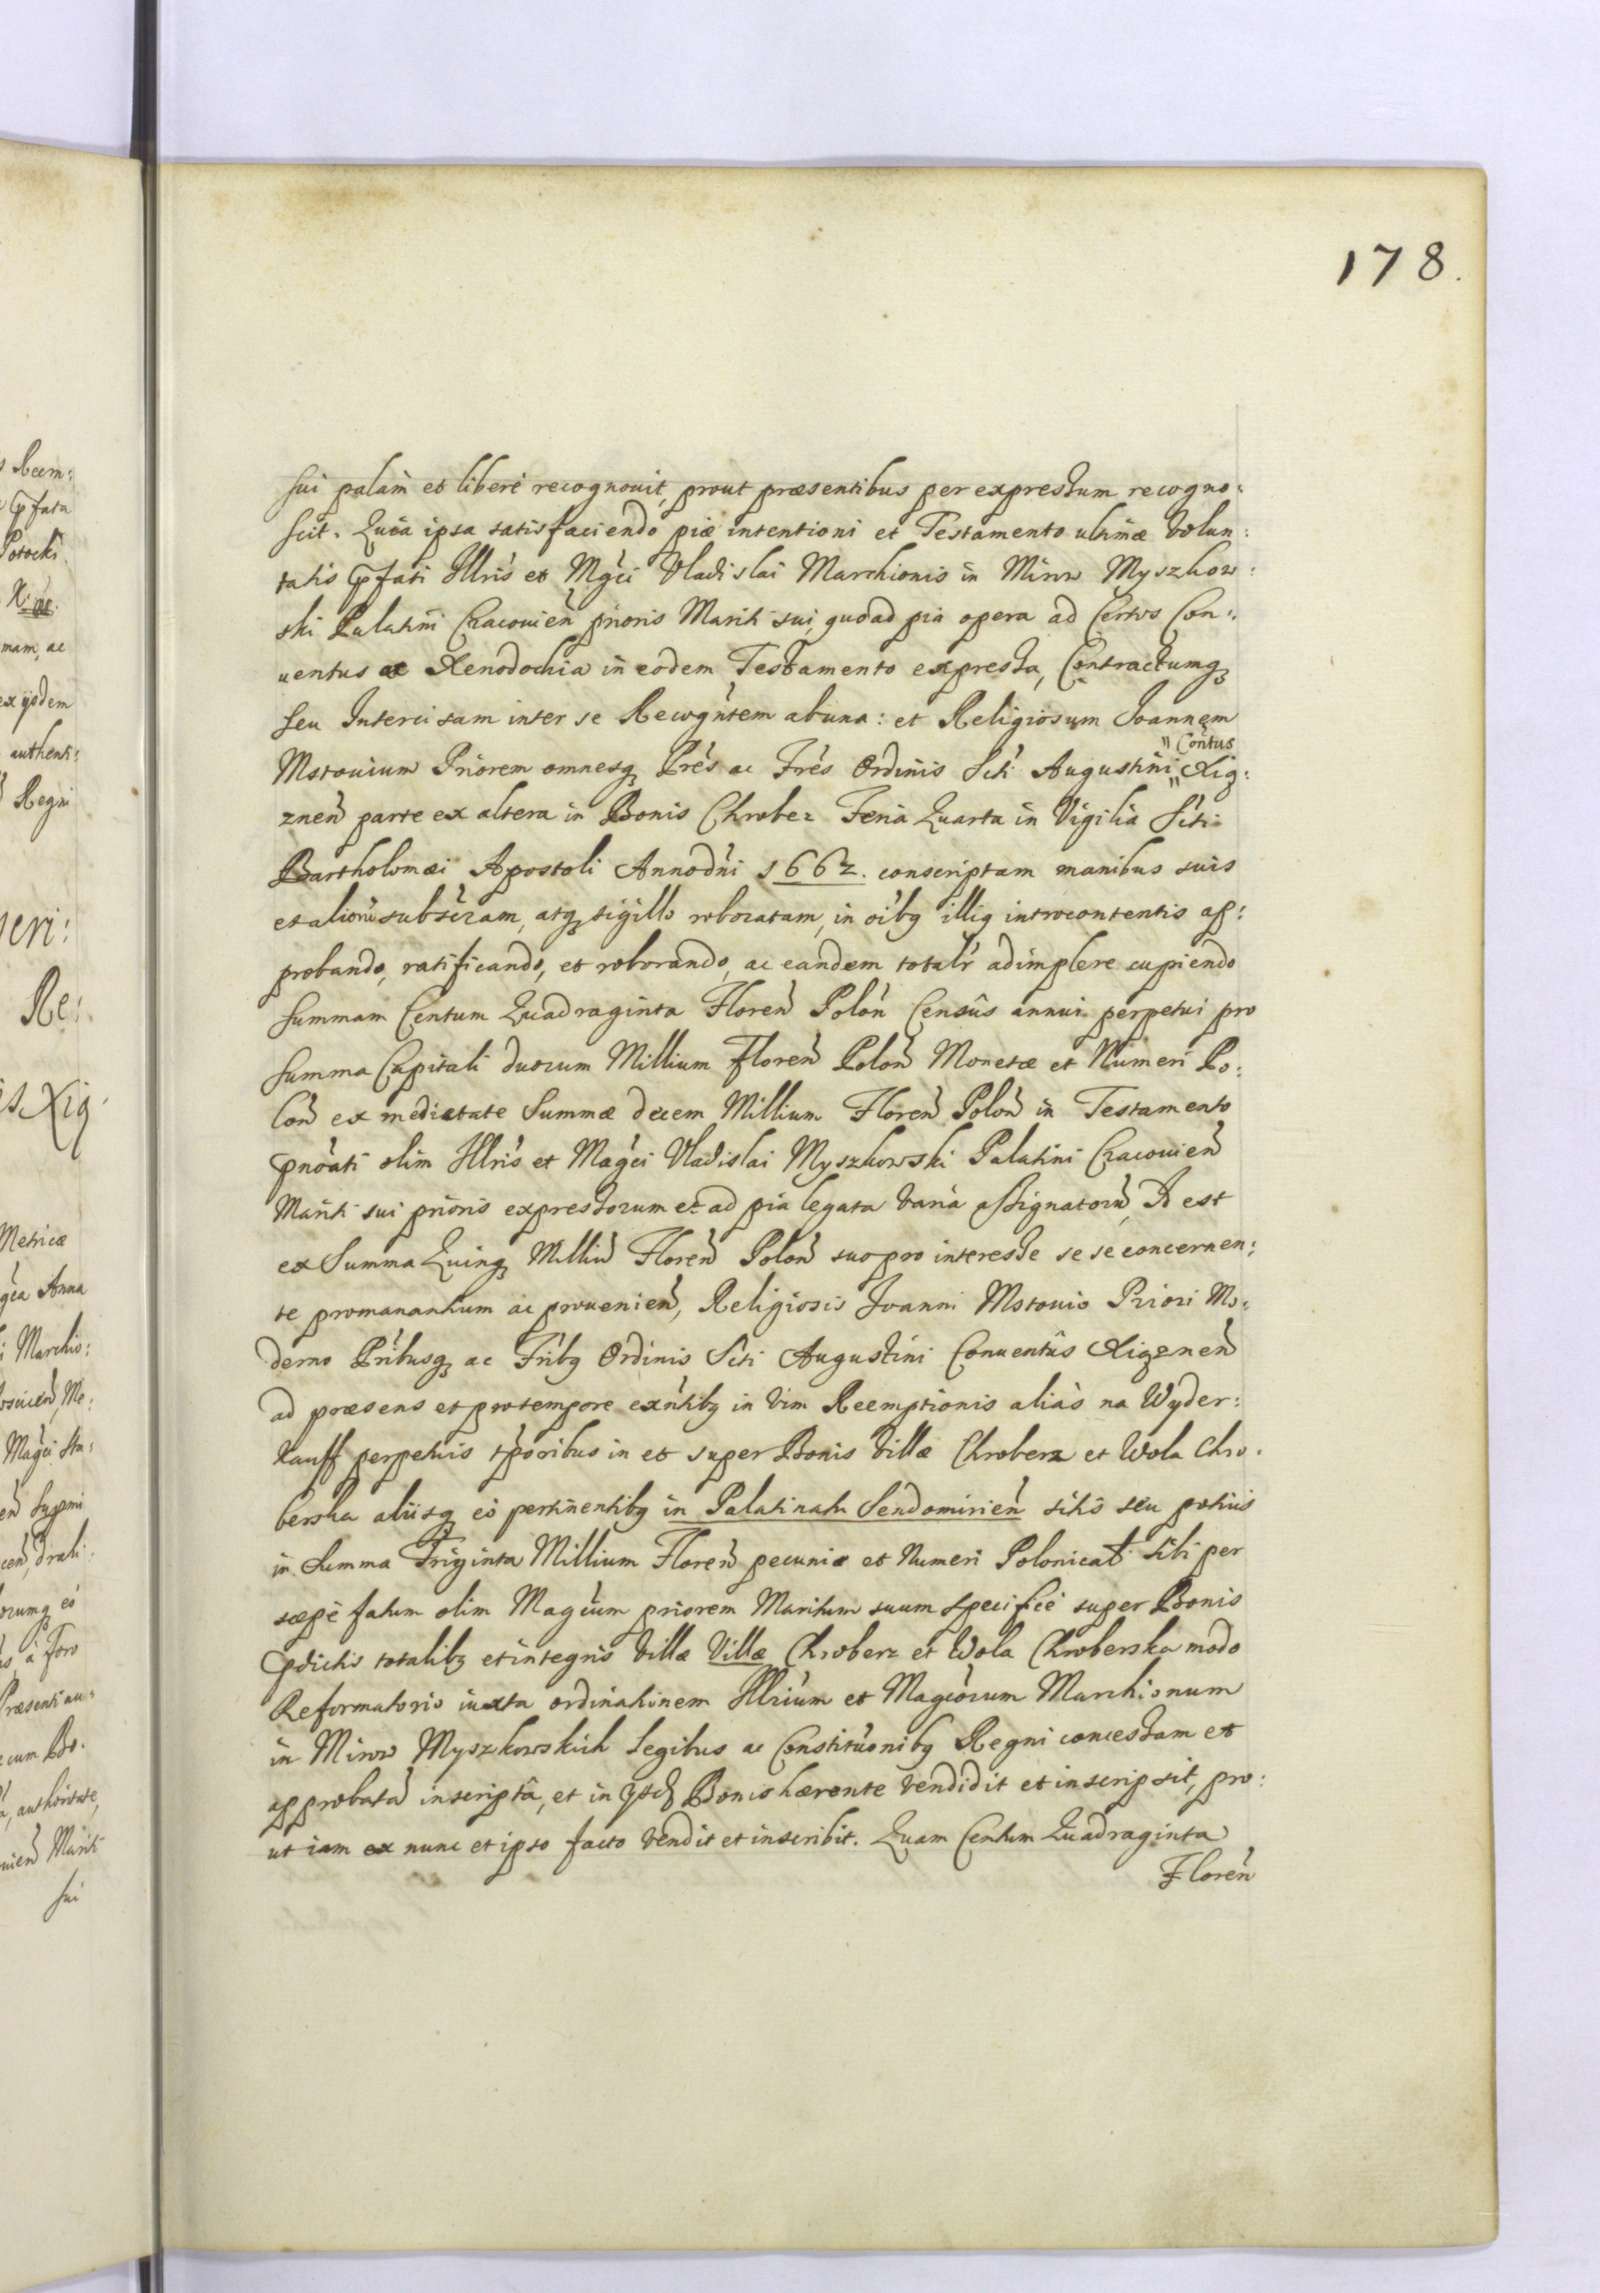 178.
sui palam et liberè recognouit, prout præsentibus per expressum recogno:
scit. Quia ipsa satisfaciendo piæ intentioni et Testamento ultimæ volun:
tatis pfati Illris et Mgci Vladislai Marchionis in Mirow Myszkow:
ski Palatini Cracouien prioris Mariti sui, quoad pia opera ad Certos Con:
uentus et Xenodochia in eodem Testamento expressa, Contractumq
seu Intercisam inter se Recogntem ab una: et Religiosum Joannem
Mstouium Priorem omnesq Prés ac Frés Ordinis Scti Augustini "Contus" Xię:
znen parte ex altera in Bonis Chrober Feria Quarta in Vigilia Scti
Bartholomæi Apostoli Anno dni 1662. conscriptam manibus suis
et aliorū subscram, atq sigillo roboratam, in oibq illiq introcontentis ap:
probando, ratificando, et roborando, ac eandem totalr adimplere cupiendo
summam Centum Quadraginta Floren Polon Censûs annui perpetui pro
summa Capitali duorum Millium Floren Polon Monetæ et Numeri Po:
lon ex medietate Summæ decem Millium Floren Polon in Testamento
pnoati olim Illris et Magci Vladislai Myszkowski Palatini Cracouien
Mariti sui prioris expressorum et ad pia legata varia assignatorū, Id est
ex Summa Quinq Milliū Floren Polon suo pro interesse se se concernen:
te promanantium ac prouenien, Religiosis Joanni Mstouio Priori Mo:
derno Pribusq ac Fribq Ordinis Scti Augustini Conuentûs Xięznen
ad præsens et pro tempore exntibq in vim Reemptionis aliàs na Wyder:
kauff perpetuis tporibus in et super Bonis Villæ Chroberz et Wola Chro:
berska aliisq eò pertinentibq in Palatinatu Sendomirien sitis seu potius
in Summa Triginta Millium Floren pecuniæ et Numeri Polonicat sibi per
sæpè fatum olim Magcum priorem Maritum suum specificè super Bonis
pdictis totalibq et integris villæ Villæ Chroberz et Wola Chroberska modo
Reformatorio iuxta ordinationem Illrium et Magcorum Marchionum
in Mirow Myszkowskich Legibus ac Constituonibq Regni concessam et
approbatā inscriptâ, et in ysd Bonis hærente vendidit et inscripsit, pro:
ut iam ex nunc et ipso facto vendit et inscribit. Quam Centum Quadraginta
Floren